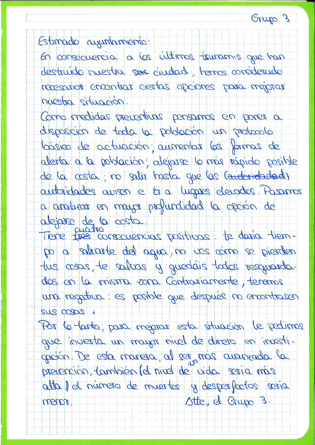 Grupo 3
Estimado ayuntamiento:
En consecuencia a los últimos tsunamis que han
destruido nuestra ciudad, hemos considerado
necesario encontrar ciertas opciones para mejorar
nuestra situación.
Como medidas preventivas pensamos en poner a
disposición de toda la población un protocolo
básico de actuación; aumentar las formas de
alerta a la población; alejarse lo más rápido posible
de la costa; no salir hasta que las (autoridadad)
autoridades avisen e ir a lugares elevados. Pasamos
a analizar en mayor profundidad la opción de
alejarse de la costa.
Tiene tres cuatro consecuencias positivas: te daría tiem-
po a salvarte del agua, no ves cómo se pierden
tus cosas, te salvas y quedáis todos resguarda-
dos en la misma zona. Contrariamente, tenemos
una negativa: es posible que después no encontrasen
sus cosas.
Por lo tanto, para mejorar esta situación le pedimos
que invierta un mayor nivel de dinero en investi-
gación. De esta manera, al ser más avanzada la
prevención, también el nivel de vida sería más
alta y el número de muertes y desperfectos sería
menor.
Atte, el Grupo 3.